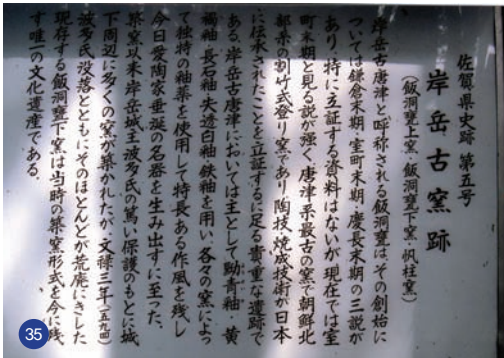 佐賀県史跡 第五号
岸岳古窯跡
(飯洞甕上窯・飯洞甕下窯・帆柱窯)
岸岳古唐津と呼称される飯洞甕は、その創始に
ついては鎌倉末期、室町末期、慶長末期の三説が
あり、特に立証する資料はないが現在では室
町末期と見る説が強く、唐津系最古の窯で朝鮮北
部系の割竹式登り窯であり陶技、焼成技術が日本
に伝承されたことを立証するに足る貴重な遺跡で
ある。岸岳古唐津においては主として黝青釉、黄
褐釉、長石釉、失透白釉、鉄釉を用い、各々の窯によっ
て独特の釉薬を使用して特長ある作風を残し
今日愛陶家垂涎の名器を生み出すに至った。
築窯以来岸岳城主波多氏の篤い保護のもとに城
下周辺に多くの窯が築かれたが、文禄三年(一五九四)
波多氏没落とともにそのほとんどが荒廃にきした
現存する飯洞甕下窯は当時の築窯形式を今に残
す唯一の文化遺産である。
35